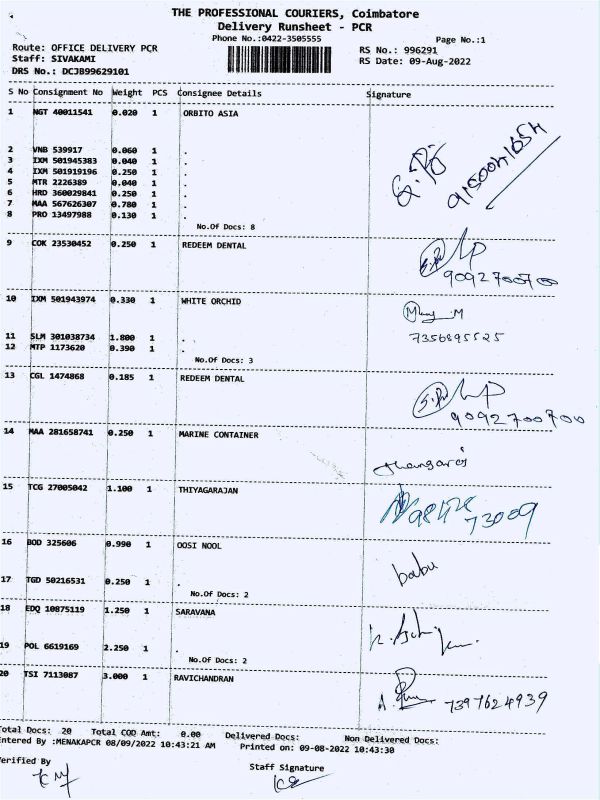 THE PROFESSIONAL COURIERS, Coimbatore
Delivery Runsheet - PCR
Phone No.:0422-3505555
Page No.:1
Route: OFFICE DELIVERY PCR
RS No.: 996291
Staff: SIVAKAMI
RS Date: 09-Aug-2022
DRS No.: DCJB99629101
S No Consignment No Weight PCS Consignee Details Signature
1 NGT 40011541 0.020 1 ORBITO ASIA
2 VNB 539917 0.060 1 .
3 IXM 501945383 0.040 1 .
4 IXM 501919196 0.250 1 .
5 MTR 2226389 0.040 1 .
6 HRD 360029841 0.250 1 .
7 MAA 567626307 0.780 1 .
8 PRO 13497988 0.130 1 .
No.Of Docs: 8
9 COK 23530452 0.250 1 REDEEM DENTAL
9092700700
10 IXM 501943974 0.330 1 WHITE ORCHID
11 SLM 301038734 1.800 1 .
7356895525
12 MTP 1173620 0.390 1 .
No.Of Docs: 3
13 CGL 1474868 0.185 1 REDEEM DENTAL
9092700700
14 MAA 281658741 0.250 1 MARINE CONTAINER
Thangaraj
15 TCG 27005042 1.100 1 THIYAGARAJAN
73009
16 BOD 325606 0.990 1 OOSI NOOL
babu
17 TGD 50216531 0.250 1 .
No.Of Docs: 2
18 EDQ 10875119 1.250 1 SARAVANA
19 POL 6619169 2.250 1 .
No.Of Docs: 2
20 TSI 7113087 3.000 1 RAVICHANDRAN
7397624939
Total Docs: 20 Total COD Amt: 0.00 Delivered Docs: Non Delivered Docs:
Entered By :MENAKAPCR 08/09/2022 10:43:21 AM Printed on: 09-08-2022 10:43:30
Verified By
Staff Signature